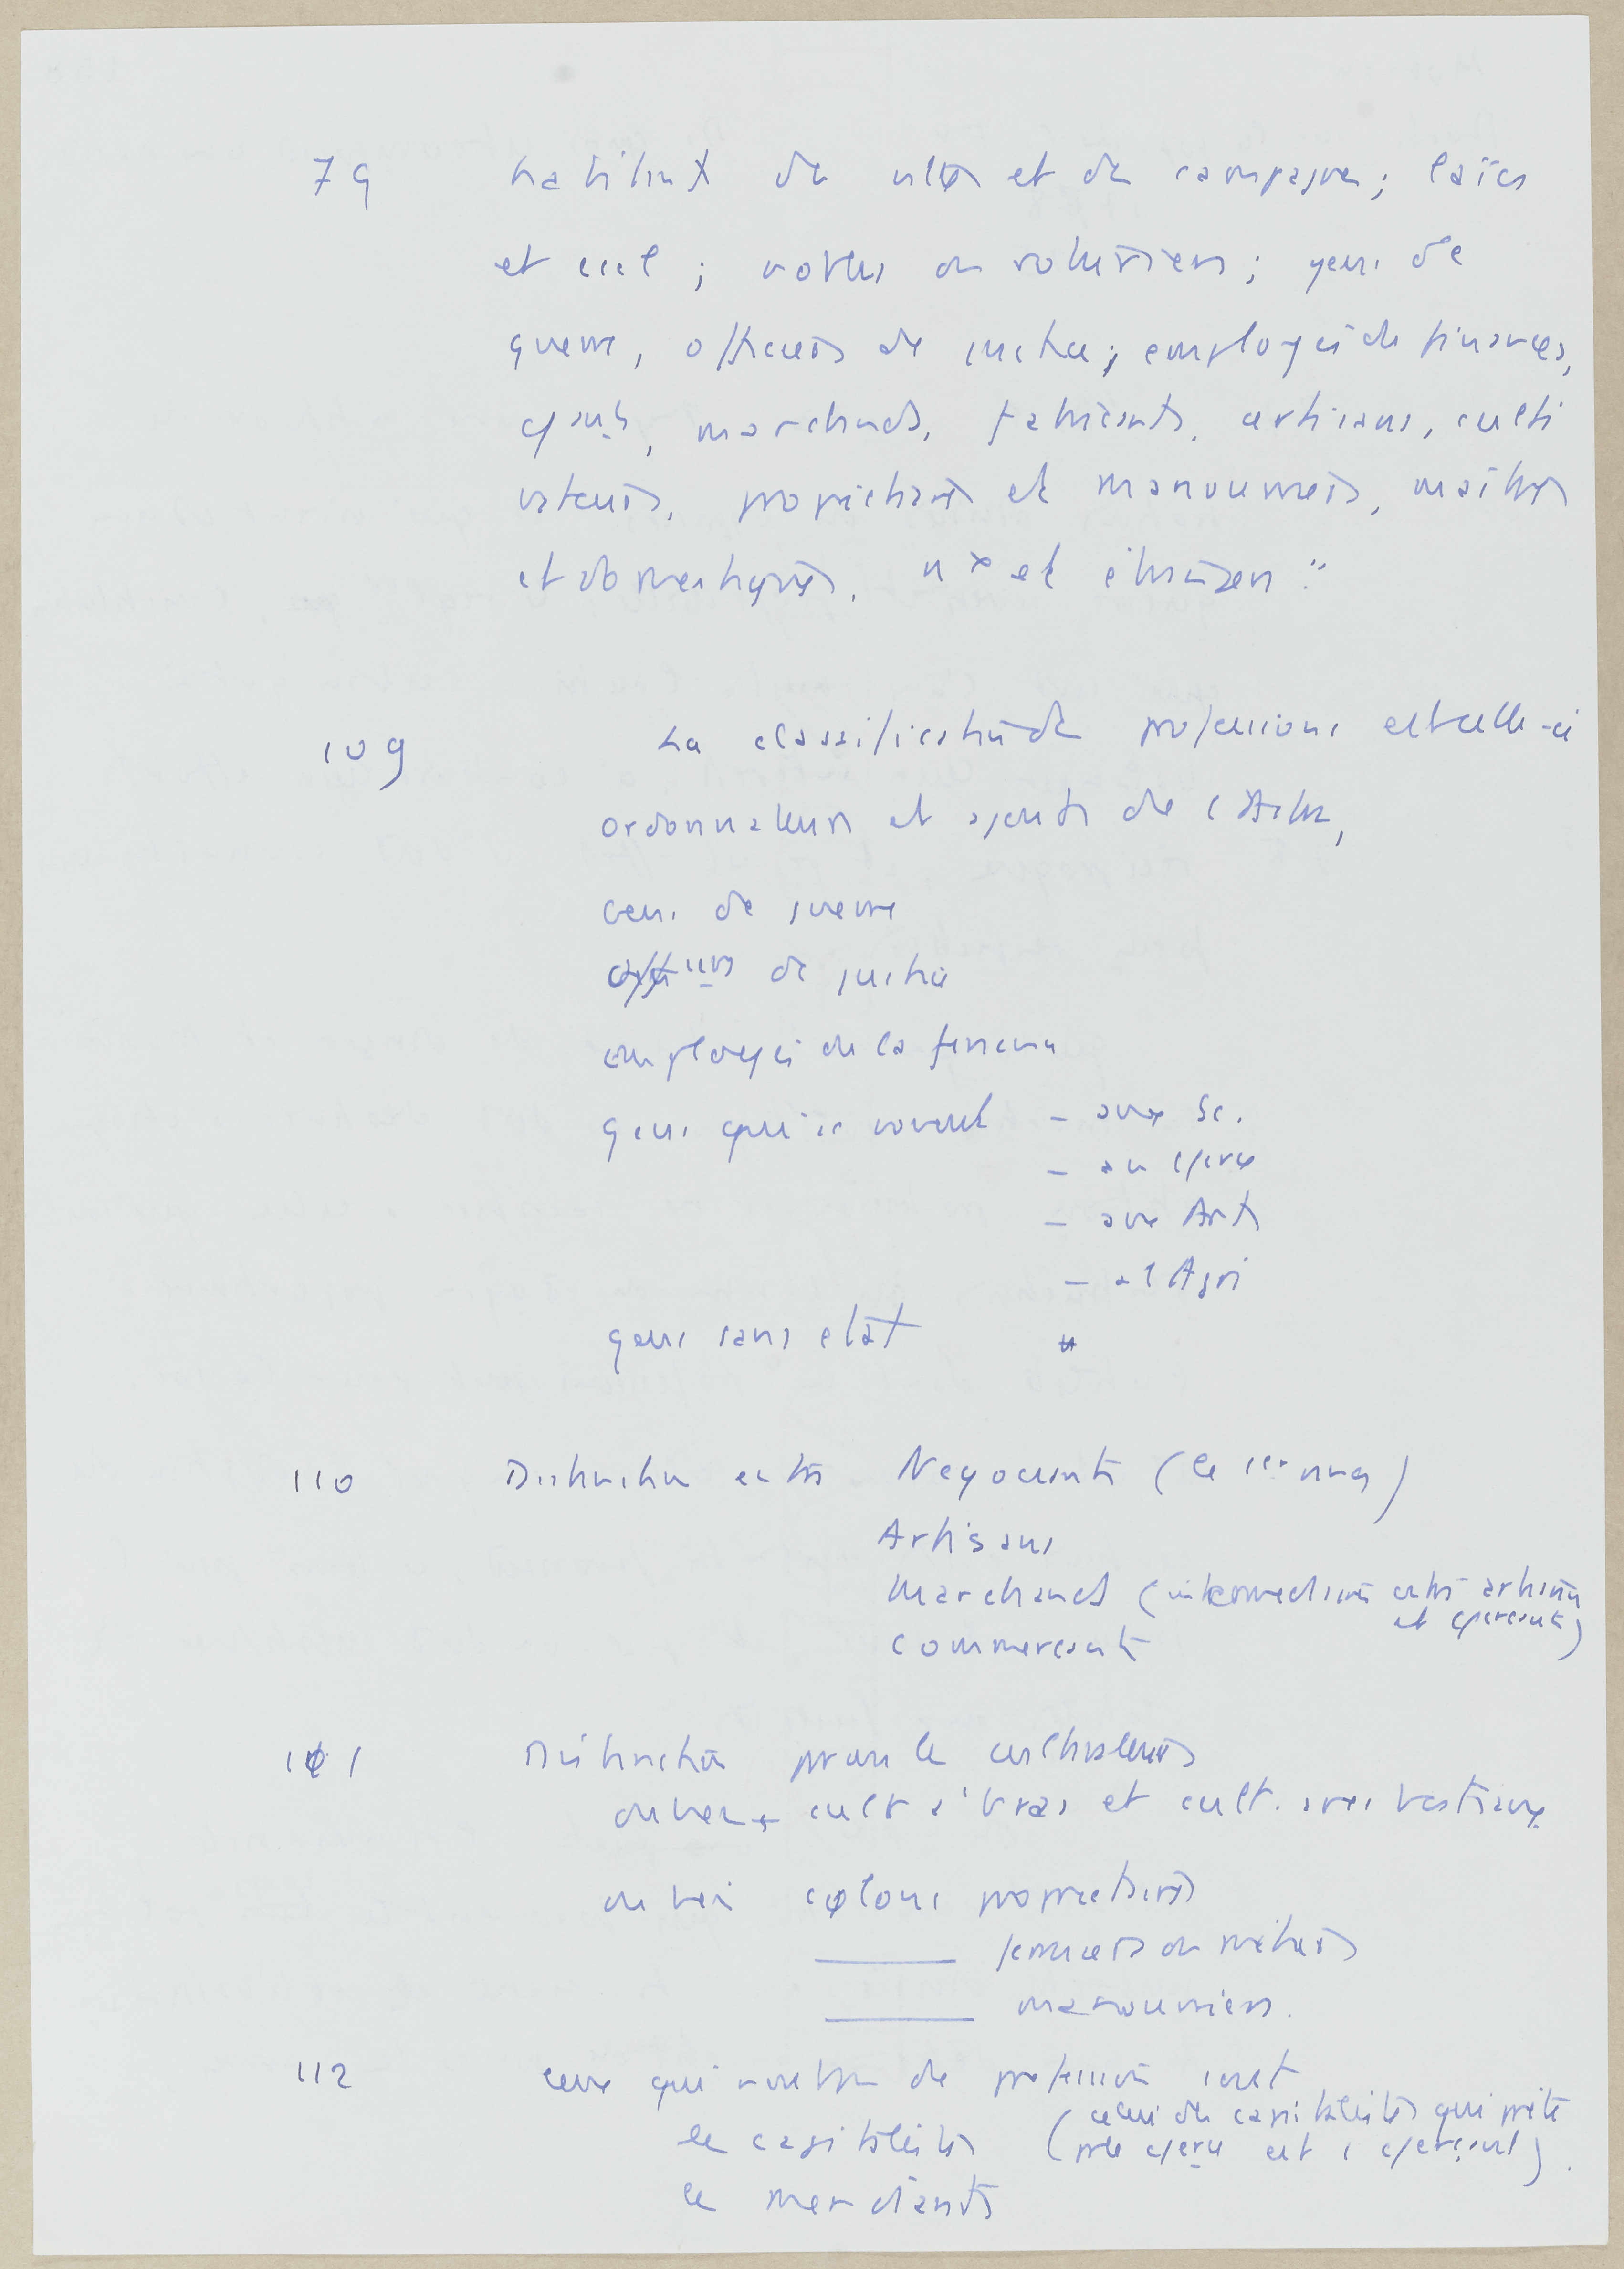 79 habitants des villes et des campagnes; laïcs
et eccl; nobles ou roturiers; gens de
guerre, officiers de justice; employés de finances,
cçants, marchands, fabricants, artisans, culti
vateurs, propriétaires et manouvriers, maîtres
et domestiques, nx et étrangers."
109 La classification des professions est celle-ci
ordonnateurs et agents de l'
Gens de guerre
officiers de justice
employés de la finance
gens qui se vouent – aux Sc.
– au cerce
– aux Arts
– a l'Agri
gens sans état
110 Distinction entre Négociants (le 1er
Artisans
Marchands (intermédiaires entre artisans
et cçerçants)
commerçants
111 Distinction pour les cultivateurs
ou bien cult à bras et cult. avec bestiaux
ou bien colons propriétaires
——— fermiers ou métayers
——— manouvriers.
112 ceux qui n'ont pas de profession sont
les capitalistes (celui des capitalistes qui prête
pr le cerce est 1 cerçant).
les mendiants